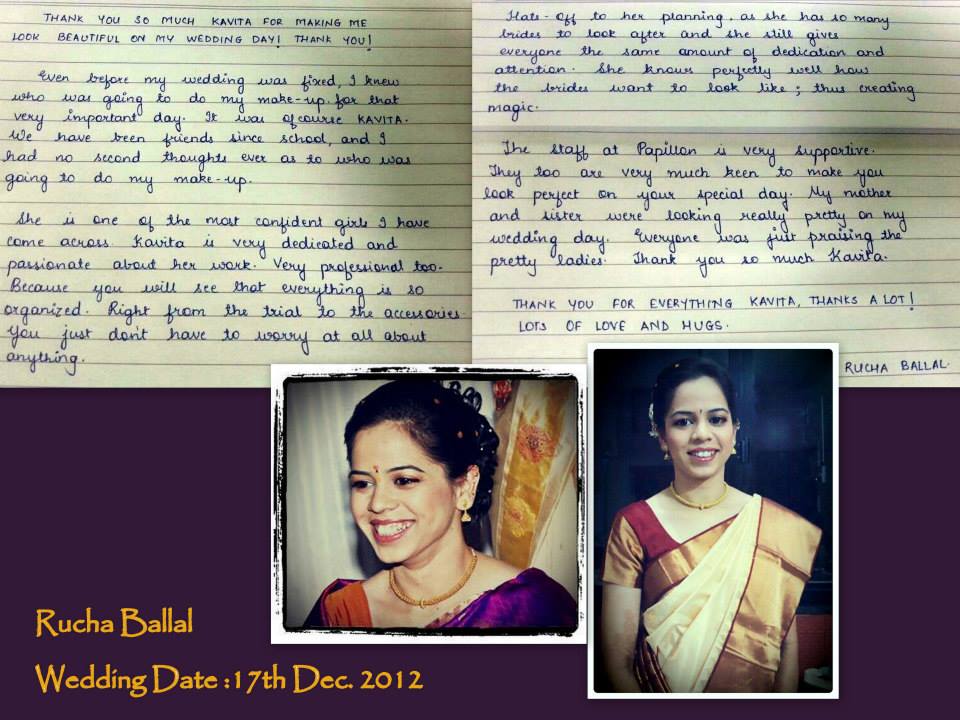 THANK YOU SO MUCH KAVITA FOR MAKING ME
LOOK BEAUTIFUL ON MY WEDDING DAY! THANK YOU!
Even before my wedding was fixed, I knew
who was going to do my make-up for that
very important day. It was ofcourse KAVITA.
We have been friends since school, and I
had no second thoughts ever as to who was
going to do my make-up.
She is one of the most confident girls I have
come across. Kavita is very dedicated and
passionate about her work. Very professional too.
Because you will see that everything is so
organized. Right from the trial to the accessories
You just don't have to worry at all about
anything.
Hats-off to her planning, as she has so many
brides to look after and she still gives
everyone the same amount of dedication and
attention. She knows perfectly well how
the brides want to look like; thus creating
magic.
The staff at Papillon is very supportive.
They too are very much keen to make you
look perfect on your special day. My mother
and sister were looking really pretty on my
wedding day. Everyone was just praising the
pretty ladies. Thank you so much Kavita.
THANK YOU FOR EVERYTHING KAVITA, THANKS A LOT!
LOTS OF LOVE AND HUGS.
RUCHA BALLAL.
Rucha Ballal
Wedding Date :17th Dec. 2012